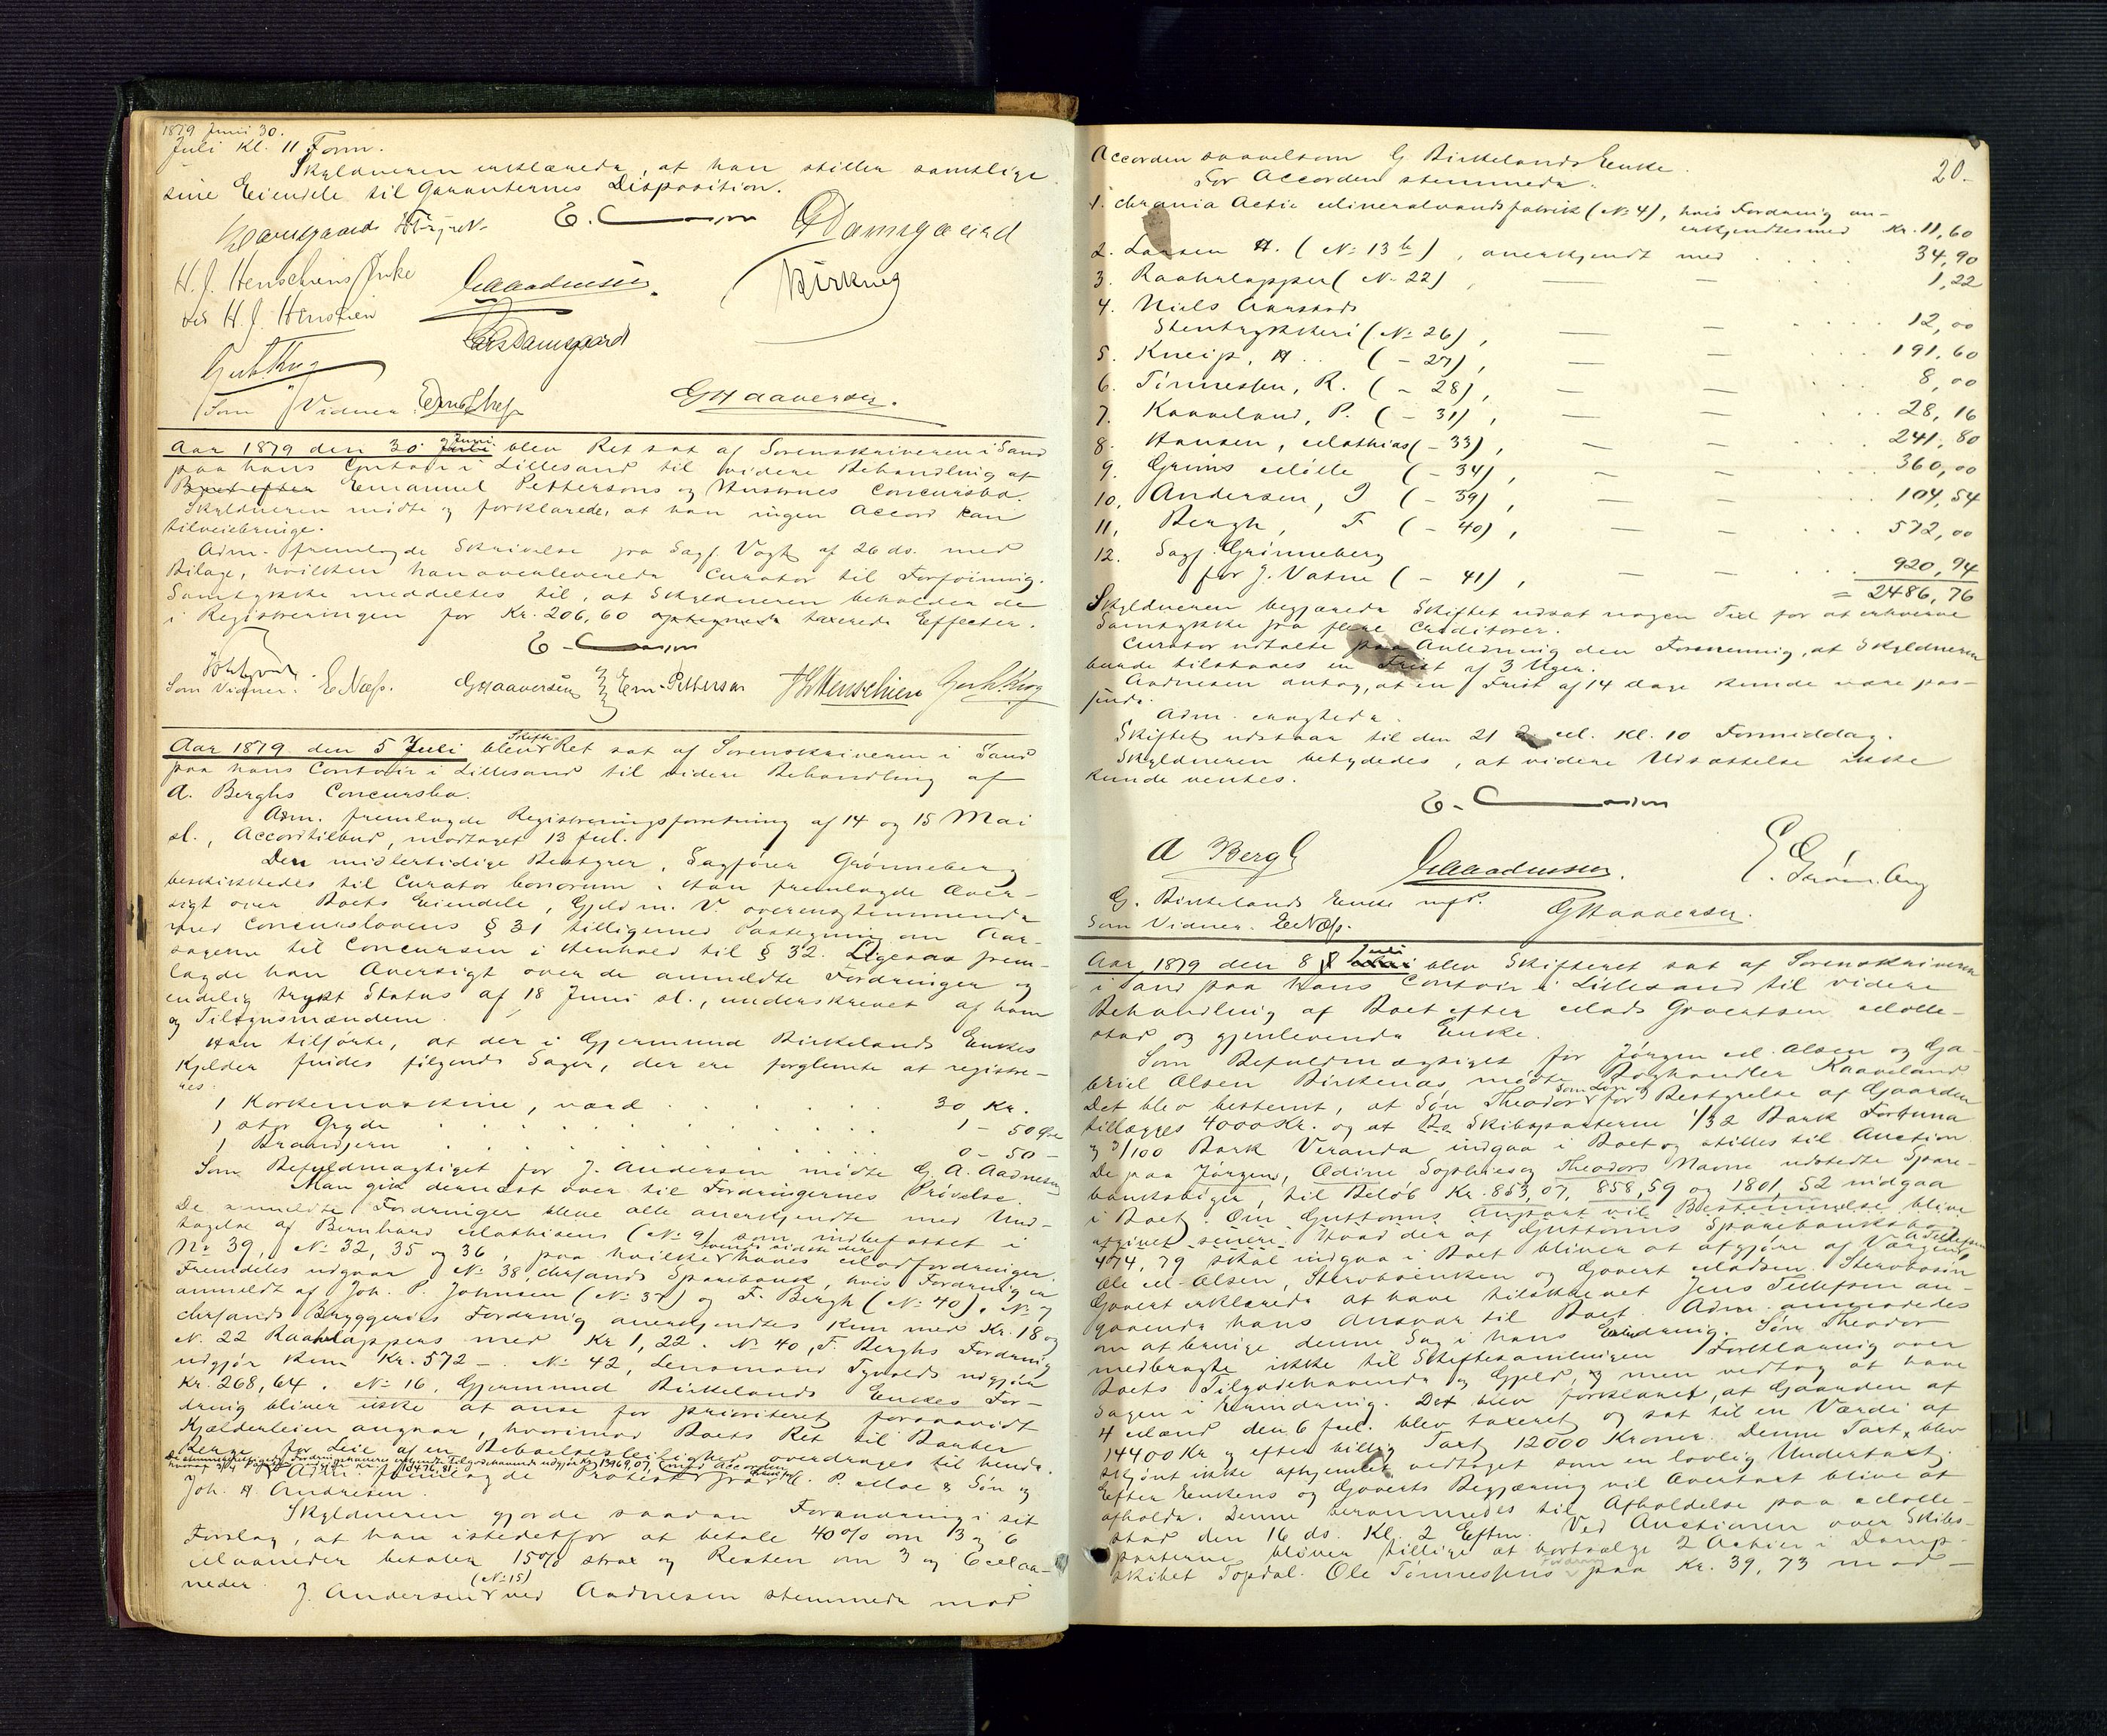 1879 Juni 30.
Juli Kl. 11 Form.
Skyldneren erklærede, at han stiller samtlige
sine Eiendele til Garanternes Disposition.
E. C
G Damsgaard
H. J. Henschiens Enke
ved H. J. Henschien
GAAadnesen
Birkrug
Lars Damsgaard
Gerh. Krog
Som Vidner:
GHaaversen.
Aar 1879 den 30 Juni blev Ret sat af Sorenskriveren i Sand
paa hans Contoir i Lillesand til videre Behandling af
Boet efter Emanuel Pettersons og Hustrues Concursbo.
Skyldneren mødte og forklarede, at han ingen Accord kan
tilveiebringe.
Adm. fremlagde Skrivelse fra Sagf. Vogt af 26 ds. med
Bilage, hvilken han overleverede Curator til Forføining.
Samtykke meddeltes til, at Skyldneren beholder de
i Registreringen for Kr. 206,60 optegnede taxerede Effecter.
E. C
Som Vidner. E Næss. GHaaversen Em. Petterson JHHenschien Gerh Krog
Aar 1879 den 5 Juli blev Skifte Ret sat af Sorenskriveren i Sand
paa hans Contoir i Lillesand til videre Behandling af
A. Berghs Concursbo.
Adm. fremlagde Registreringsforretning af 14 og 15 Mai
sl., Accordtilbud, modtaget 13 ful.
Den midlertidige Bestyrer, Sagfører Grønneberg
beskikkedes til Curator bonorum. Han fremlagde Over-
sigt over Boets Eiendele, Gjeld m. V. overensstemmende
med Concurslovens § 31 tilligemed Paategning om Aar-
sagerne til Concursen i Henhold til § 32. Ligesaa frem-
lagde han Oversigt over de anmeldte Fordringer og
endelig trykt Status af 18 Juni sl., underskrevet af ham
og Tilsynsmændene.
Han tilførte, at der i Gjermund Birkelands Enkes
Kjelder findes følgende Sager, der ere forglemte at registre-
res:
1 Korkemaskine, værd . . . . . 30 Kr.
1 stor Gryde . . . . . 1 - 50 Øre
1 Brandjern . . . . . 0 - 50 -
Som Befuldmægtiget for J. Andersen mødte G. A. Aadnesen
Man gik dernæst over til Fordringernes Prøvelse.
De anmeldte Fordringer bleve alle anerkjendte med Und-
tagelse af Bernhard Mathisens (No 9) som indbefattet i
No 39, No 32, 35 og 36, paa hvilke tvende sidste der haves Modfordringer.
Fremdeles udgaar No 38, Chrsands Sparebank, hvis Fordring er
anmeldt af Joh. P. Johnsen (No 37) og F. Bergh (No 40). No 7
Chrsands Bryggeries Fordring anerkjendtes kun med Kr. 18 og
No. 22 Raaklappers med Kr 1,22. No 40, F. Berghs Fordring
udgjør kun Kr. 572 -. No 42, Lensmand Tyvolds udgjør
Kr. 268,64. No 16, Gjermund Birkelands Enkes For-
dring bliver ikke at anse for prioriteret forsaavidt
Kjælderleien angaar, hvorimod Boets Ret til Bauber
Berge for Leie af en Beboelsesleilighed overdrages til hende.
Joh. A Andresen.
Skyldneren gjorde saadan Forandring i sit
Forslag, at han istedetfor at betale 40% om 3 og 6
Maaneder betaler 15% strax og Resten om 3 og 6 Maa-
neder.
J. Andersen (No 15) ved Aadnesen stemmede mod
20.
Accorden saavelsom G Birkelands Enke.
For Accorden stemmede:
1. Chrania Actie Mineralvandsfabrik (No 4), hvis Fordring an-
erkjendtes med Kr. 11,60
2. Larsen A. (No 13 b), anerkjendt med . . . 34,90
3. Raaklapper (No 22), — — . . 1,22
4. Niels Aarstads
Stentrykkeri (No 26), — — . . . 12,00
5. Kneip, A . . (- 27), — — . . 191,60
6. Tønnessen, R. (- 28), — — . . 8,00
7. Kaaveland, P. (- 31), — — . . 28,16
8. Hansen, Mathias (- 33), — — . . 241,80
9. Grims Mølle (- 34), — — . . 360,00
10. Andersen, J (- 39), — — . . 104,54
11. Bergh, F (- 40), — — . . . 572,00
12. Sagf. Grønneberg
for J. Vatne (- 41), — — . . . 920,94
= 2486,76
Skyldneren begjærede Skiftet udsat nogen Tid for at erhverve
Samtykke fra flere Creditorer.
Curator udtalte paa Anledning den Formening, at Skyldneren
burde tilstaaes en Frist af 3 Uger.
Aadnesen antog, at en Frist af 14 dage kunde være pas-
sende.
Adm. enighede.
Skiftet udstaar til den 21 d. M. Kl. 10 Formiddag.
Skyldneren betydedes, at videre Udsættelse ikke
kunde ventes.
E. C
A Bergh
GAAadnesen.
E. Grønneberg
G. Birkelands Enke
GHaaversen.
Som Vidner. E Næss.
Aar 1879 den 8 Juli blev Skifteret sat af Sorenskriveren
i Sand paa hans Contoir i Lillesand til videre
Behandling af Boet efter Mads Govertsen Molle-
stad og gjenlevende Enke.
Som Befuldmægtiget for Jørgen M. Olsen og Ga-
briel Olsen Birkenæs mødte Boghandler Kaaveland
Det blev bestemt, at Søn Theodor som Løn for Bestyrelse af Gaarden
tillægges 4000 Kr. og at Skibsparterne 1/32 Bark Fortuna
og 3/100 Bark Veranda indgaa i Boet og stilles til Auction
De paa Jørgen, Odine Sophies og Theodors Navne udstedte Spare-
banksbøger, til Beløb Kr. 853,07, 858,59 og 1801,52 indgaa
i Boet. Om Guttorms Anpart vil Bestemmelse blive
afgivet senere. Hvad der af Guttorms Sparebanksbog
474,79 skal indgaa i Boet bliver at afgjøre af Værgen
Ole M. Olsen, Stervboenken og Govert Madsen. Stervbosøn
Govert erklærede at have tilskrevet Jens Tellefsen an-
gaaende hans Ansvar til Boet. Adm. anmodedes
om at bringe denne Sag i hans Erindring. Søn Theodor
medbragte ikke til Skiftesamlingen Forklaring over
Boets Tilgodehavende og Gjeld, men vedtog at have
Sagen i Erindring. Det blev forklaret, at Gaarden af
4 Mænd den 6 ful. blev taxeret og sat til en Værdi af
14400 Kr og efter billig Taxt 12000 Kroner. Denne Taxt blev
skjønt ikke afhjemlet vedtaget som en lovlig Undertaxt.
Efter Enkens og Goverts Begjæring vil Overtaxt blive at
afholde. Denne berammedes til Afholdelse paa Molle-
stad den 16 ds. Kl. 2 Eftm. Ved Auctionen over Skibs-
parterne bliver tillige at bortsælge 2 Actier i Damp-
skibet Topdal. Ole Tønnessens Fordring paa Kr. 39,73 mod-